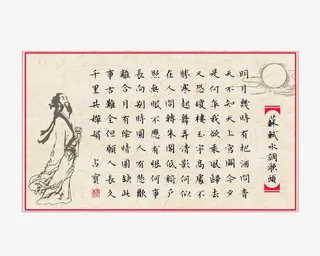 【蘇軾水調歌頭】
明月幾時有把酒問青
天不知天上宮闕今夕
是何年我欲乘風歸去
又恐瓊樓玉宇高處不
勝寒起舞弄清影何似
在人間轉朱閣低綺戶
照無眠不應有恨何事
長向別時圓人有悲歡
離合月有陰晴圓缺此
事古難全但願人長久
千里共嬋娟